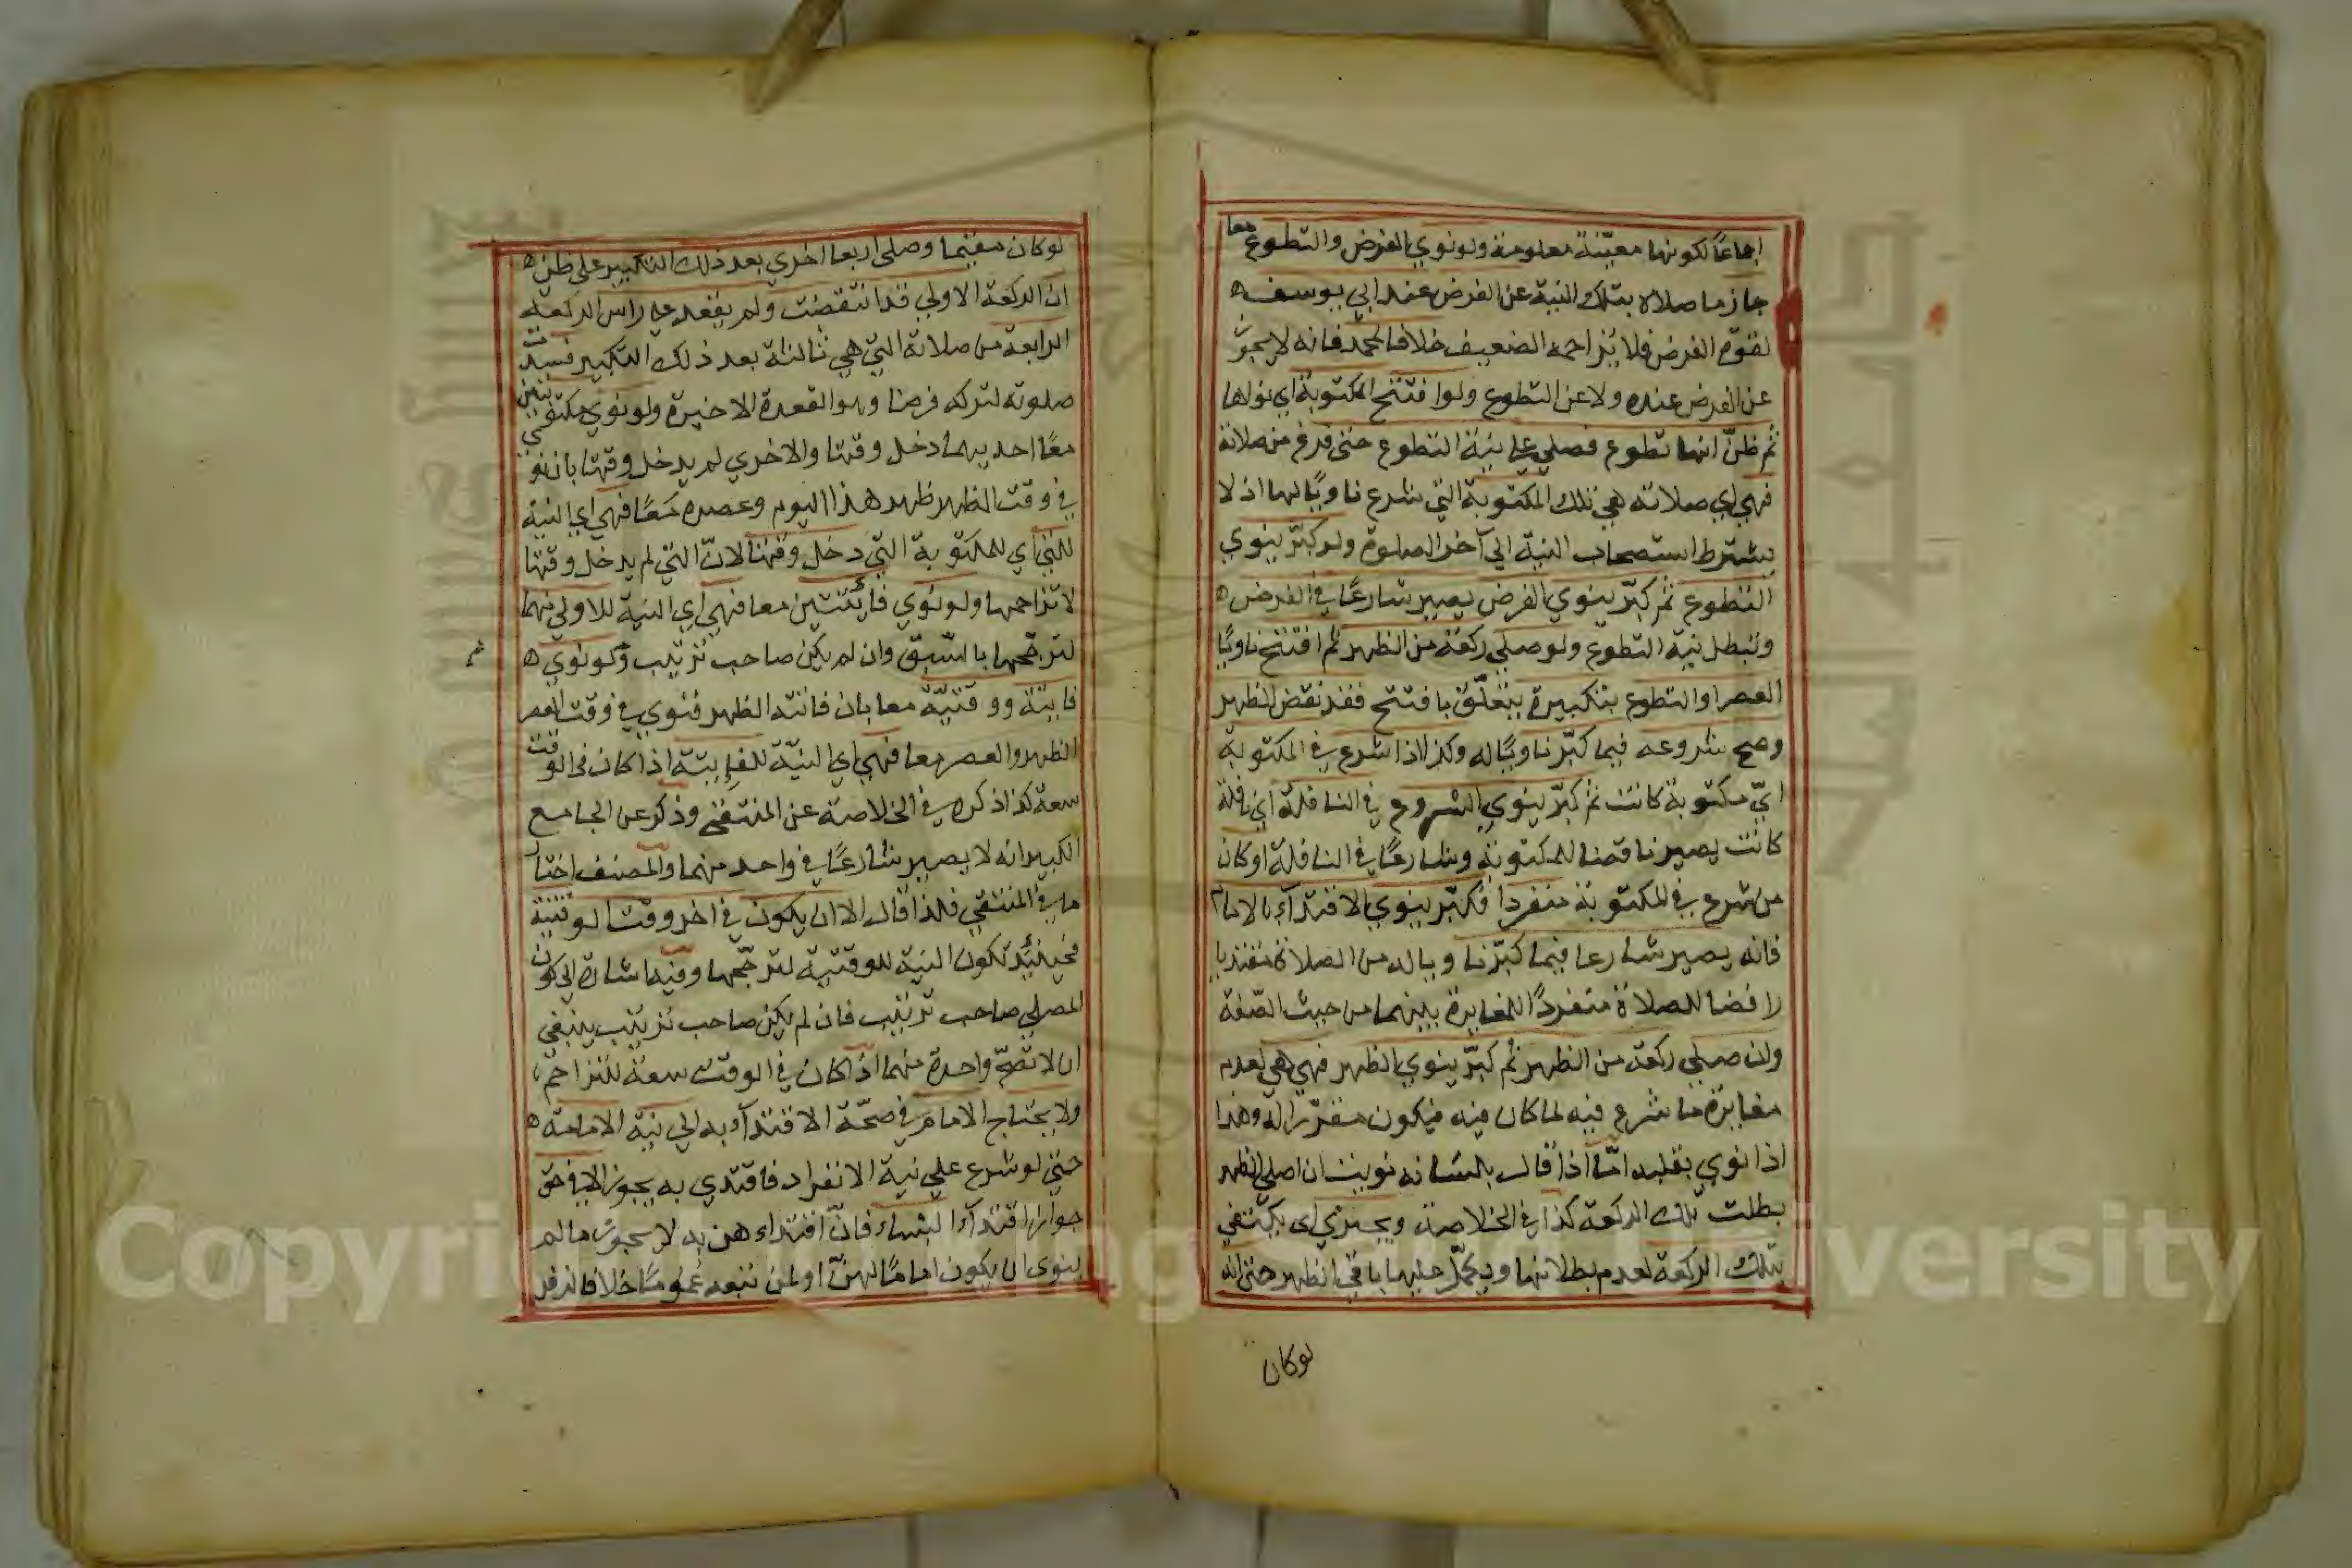 اجماعاً لكونها معيّنة معلومة ولو نوي الفرض والتطوع معا
جاز ما صلاه بتلك النية عن الفرض عند ابي يوسف
لقوة الفرض فلا يزاحمه الضعيف خلافا لمحمد فانه لا يجوز
عن الفرض عنده ولا عن التطوع ولو افتتح المكتوبة اي نواها
ثم ظنّ انها تطوع فصلي علي نية التطوع حتى فرغ من صلاته
فهي اي صلاته هي تلك المكتوبة التي شرع ناويًا لها اذ لا
يشترط استصحاب النية الي آخر الصلوة ولو كبّر ينوي
التطوع ثم كبّر ينوي الفرض يصير شارعًا في الفرض
وتبطل نية التطوع ولو صلي ركعة من الظهر ثم افتتح ناويًا
العصر او التطوع بتكبيرة يتعلّق بافتتح فقد نقض الظهر
وصح شروعه فيما كبّر ناويًا له وكذا اذا شرع في المكتوبة
ايّ مكتوبة كانت ثم كبّر ينوي الشروع في النافلة اي نافلة
كانت يصير ناقضا للمكتوبة وشارعًا في النافلة او كان
من شرع في المكتوبة منفردا فكبّر ينوي الاقتدآء بالامام
فانه يصير شارعا فيما كبّر ناويا له من الصلاة مقتديا
رافضا للصلاة منفردًا للمغايرة بينهما من حيث الصّفة
ولن صلي ركعة من الظهر ثم كبّر ينوي الظهر فهي هي لعدم
مغايرة ما شرع فيه لما كان فيه فيكون مقرّرا له وهذا
اذا نوي بقلبه امّا اذا قال بلسانه نويت ان اصلي الظهر
بطلت تلك الركعة كذا في الخلاصة ويجزي اى يكتفي
بتلك الركعة لعدم بطلانها ويكمّل عليها باقي الظهر حتى انه
لوكان
لو كان مقيما وصلى اربعا اخري بعد ذلك التكبير على ظن
ان الركعة الاولي قد انتقضت ولم يقعد علي راس الركعة
الرابعة من صلاته التي هي ثالثة بعد ذلك التكبير فسدت
صلوته لتركه فرضا وهو القعدة الاخيرة ولو نوي مكتوبتين
معًا احديهما دخل وقتها والاخري لم يدخل وقتها بان نوي
في وقت الظهر ظهر هذا اليوم وعصره معًا فهي اي النية
للتي اي للمكتوبة التي دخل وقتها لانّ التي لم يدخل وقتها
لا تزاحمها ولو نوي فائتتين معا فهي اي النية للاولي منهما
لترجّحها بالسّبق وان لم يكن صاحب ترتيب ولو نوي
فايتة ووقتيّة معا بان فاتته الظهر فنوي في وقت العصر
الظهر والعصر معا فهي اي النيّة للفايتة اذا كان في الوقت
سعة كذا ذكره في الخلاصة عن المنتقى وذكر عن الجامع
الكبير انه لا يصير شارعًا في واحد منهما والمصنف اختار
ما في المنتقي فلذا قال الا ان يكون في اخر وقت الوقتية
فحينئذ تكون النية للوقتية لترجّحها وفيه اشارة الي كون
المصلي صاحب ترتيب فان لم يكن صاحب ترتيب ينبغي
ان لا تصحّ واحدة منهما اذا كان في الوقت سعة للتزاحم
ولا يحتاج الامام في صحّة الاقتدآء به الي نية الامامة
حتي لو شرع علي نية الانفراد فاقتدي به يجوز الا في حق
جواز اقتدآء النساء فانّ اقتداء هن به لا يجوز ما لم
ينوى ان يكون امامًا لهنّ او لمن تبعه عمومًا خلافا لزفر